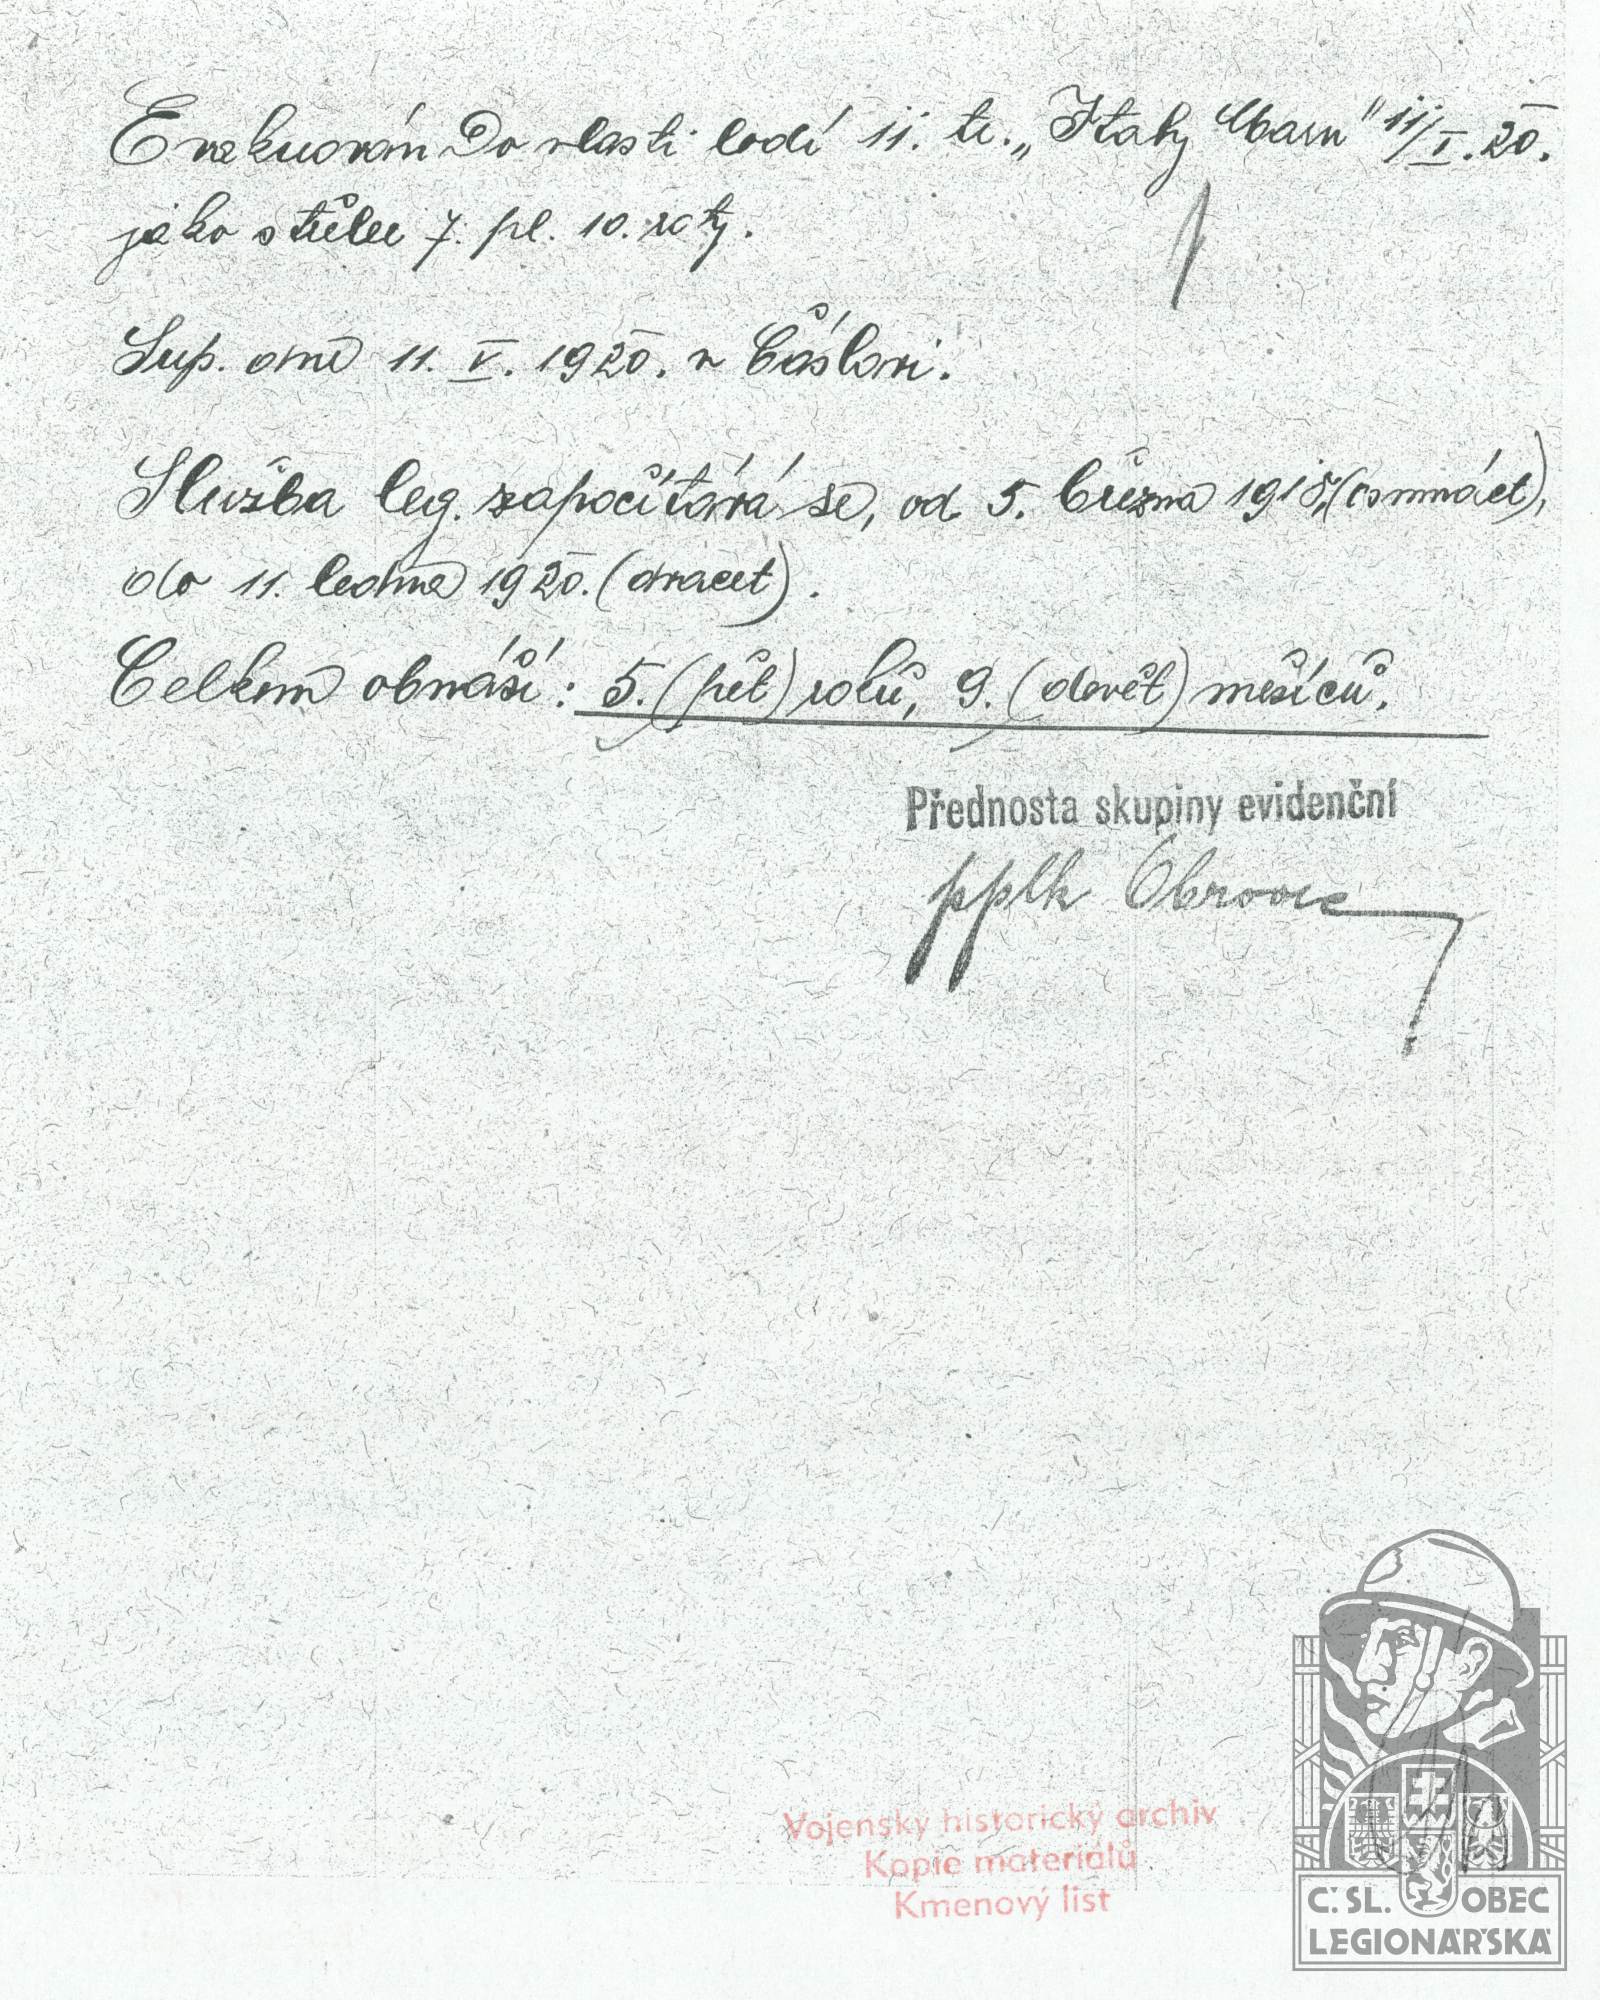 Evakuován Do vlasti lodí 11. tr. „Italy Maru" 11/I. 20.
jako střelec 7. pl. 10. roty.
Sup. dne 11. V. 1920. v Čáslavi.
Služba leg. započítává se, od 5. března 1918, (osmnáct),
do 11. ledna 1920. (dvacet).
Celkem obnáší: 5. (pět) roků, 9. (devět) měsíců.
Přednosta skupiny evidenční
pplk
Vojenský historický archiv
Kopie materiálů
Kmenový list
Č. SL. OBEC
LEGIONÁŘSKÁ